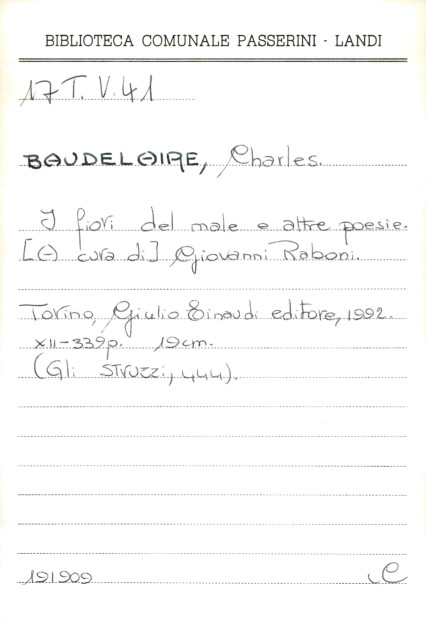 BIBLIOTECA COMUNALE PASSERINI - LANDI
17 T. V. 41
BAUDELAIRE, Charles.
I fiori del male e altre poesie.
[A cura di] Giovanni Raboni.
Torino, Giulio Einaudi editore, 1992.
XII-339p. 19cm.
(Gli struzzi, 444).
191909 C